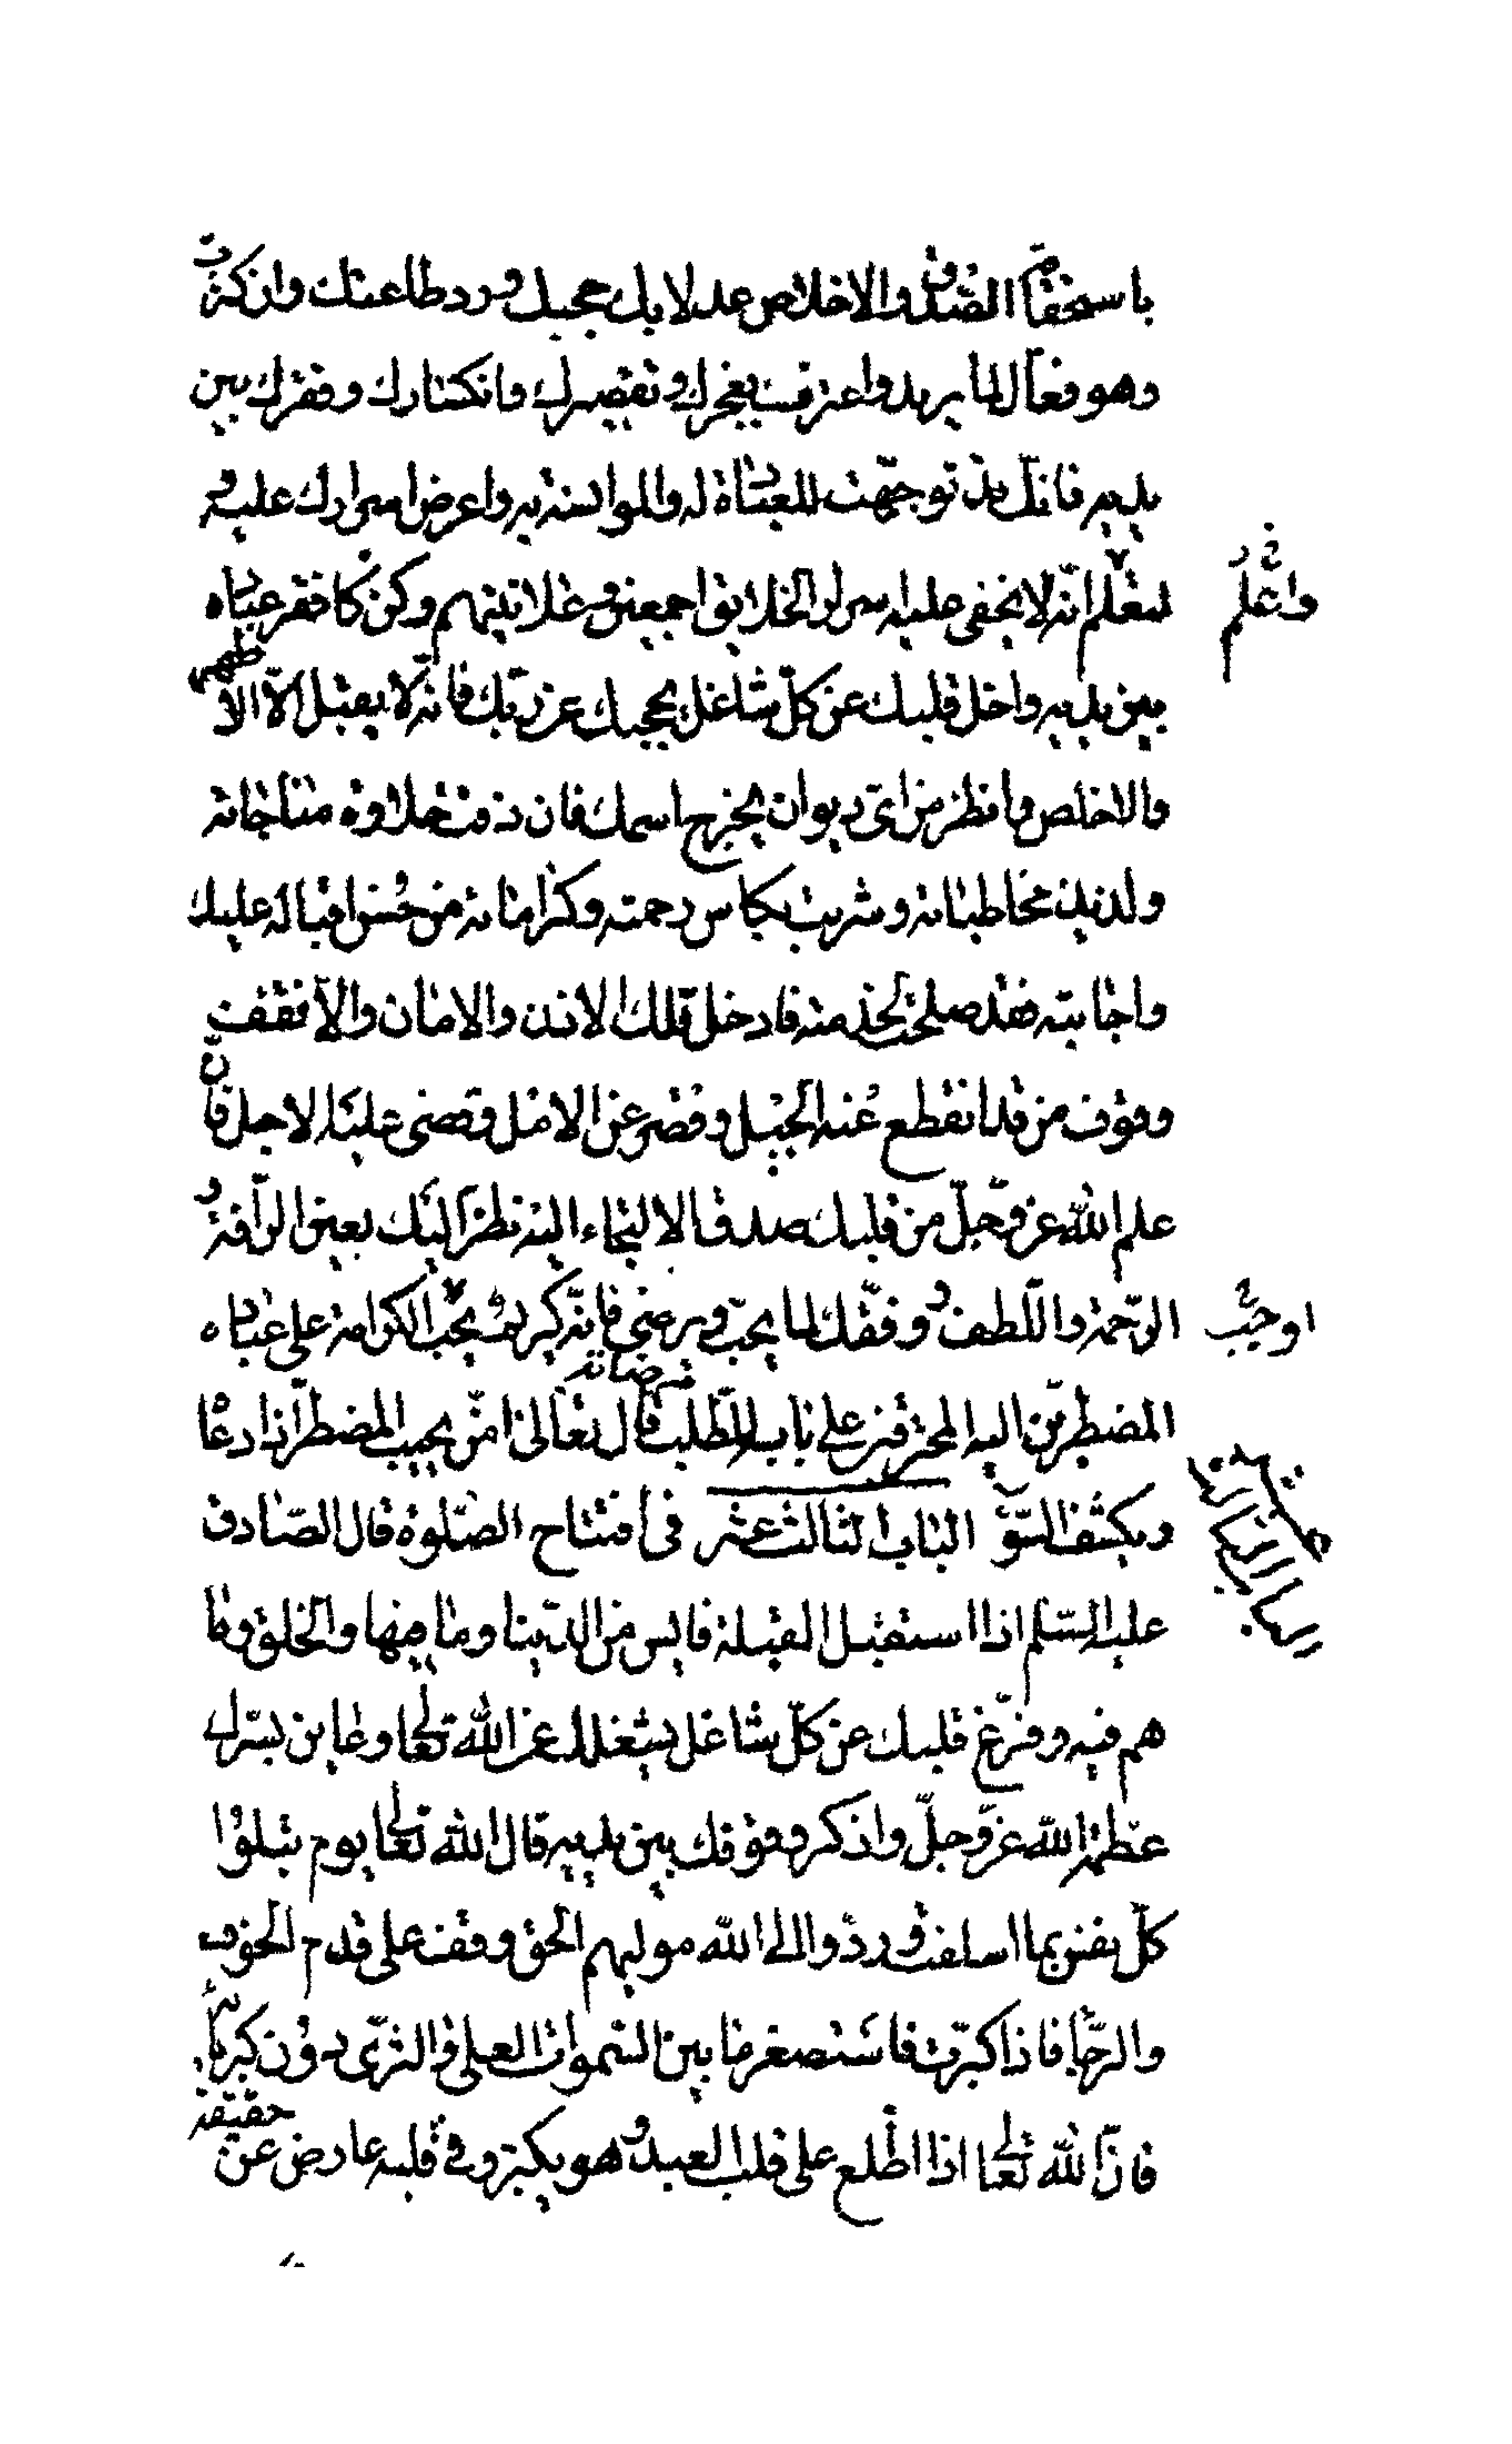 باستحقاق الصدق والاخلاص عدلا بك حجبك ورد طاعتك وان كثرت
وهو فعال لما يريد واعترف بعجزك وتقصيرك وانكسارك وفقرك بين
يديه فانك قد توجهت للعبادة له والموانسة به واعرض اسرارك عليه
ولتعلم انه لا يخفى عليه اسرار الخلايق اجمعين وعلانيتهم وكن كافقر عباده
بين يديه واخل قلبك عن كل شاغل يحجبك عن ربك فانه لا يقبل الا الاطهر
والاخلص وانظر من اى ديوان يخرج اسمك فان ذقت حلاوة مناجاته
ولذيذ مخاطباته وشربت بكاس رحمته وكراماته من حسن اقباله عليك
واجابته فقد صلحت لخدمته فادخل فلك الاذن والامان والا فقف
وقوف من قد انقطع عنه الحيل وقصر عن الامل وقضى عليه الاجل فان
علم الله عز وجل من قلبك صدق الالتجاء اليه نظر اليك بعين الرافة و
الرحمة واللطف ووفقك لما يحب ويرضى فانه كريم يحب الكرامة على عباده
المضطرين اليه المحترقين على بابه لطلب مرضاته قال تعالى امن يجيب المضطر اذا دعاه
ويكشف السوء الباب الثالث عشر فى افتتاح الصلوة قال الصادق
عليه السلم اذا استقبل القبلة فايس من الدنيا وما فيها والخلق وما
هم فيه وفرغ قلبك عن كل شاغل يشغلك عن الله تعالى وعاين بسرك
عظمة الله عز وجل واذكر وقوفك بين يديه قال الله تعالى يوم تبلوا
كل نفس بما اسلفت وردوا الى الله موليهم الحق وقف على قدم الخوف
والرجا فاذا كبرت فاستصغر ما بين السموات العلى والثرى دون كبريائه
فان الله تعالى اذا اطلع على قلب العبد وهو يكبر وفى قلبه عارض عن حقيقة
واعلم
اوجب